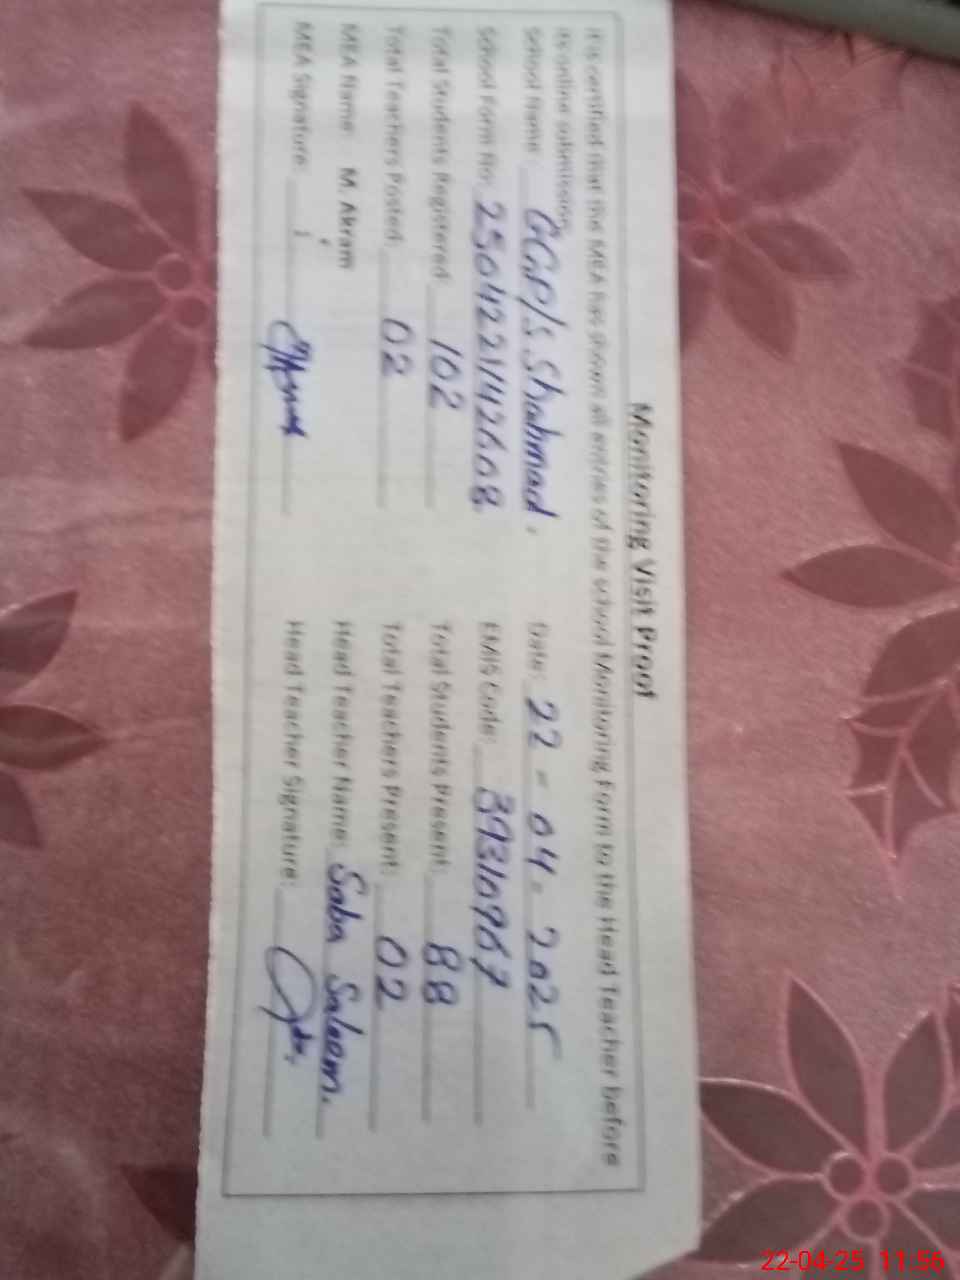 Monitoring Visit Proof
It is certified that the MEA has shown all entries of the school Monitoring Form to the Head Teacher before
its online submission.
School Name: GGP/S Shahmad. Date: 22-04-2025
School Form No: 2504221142608 EMIS Code: 39310967
Total Students Registered 102 Total Students Present: 88
Total Teachers Posted: 02 Total Teachers Present: 02
MEA Name: M. Akram Head Teacher Name: Saba Saleem.
MEA Signature: Head Teacher Signature:
22-04-25 11:56